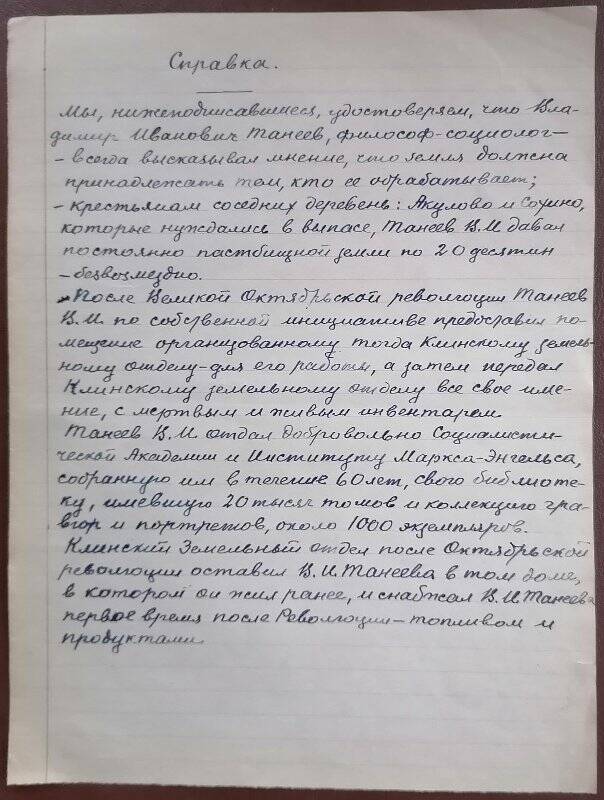 Справка.
Мы, нижеподписавшиеся, удостоверяем, что Вла-
димир Иванович Танеев, философ-социолог—
- всегда высказывал мнение, что земля должна
принадлежать тем, кто ее обрабатывает;
- крестьянам соседних деревень: Акулово и Сохино,
которые нуждались в выпасе, Танеев В.И. давал
постоянно пастбищной земли по 20 десятин
- безвозмездно.
- После Великой Октябрьской революции Танеев
В.И. по собственной инициативе предоставил по-
мещение организованному тогда Клинскому земель-
ному отделу - для его работы, а затем передал
Клинскому земельному отделу все свое име-
ние, с мертвым и живым инвентарем.
Танеев В.И. отдал добровольно Социалисти-
ческой Академии и Институту Маркса-Энгельса,
собранную им в течение 60 лет, свою библиоте-
ку, имевшую 20 тысяч томов и коллекцию гра-
вюр и портретов, около 1000 экземпляров.
Клинский Земельный отдел после Октябрьской
революции оставил В.И. Танеева в том доме,
в котором он жил ранее, и снабжал В.И. Танеева
первое время после Революции - топливом и
продуктами.